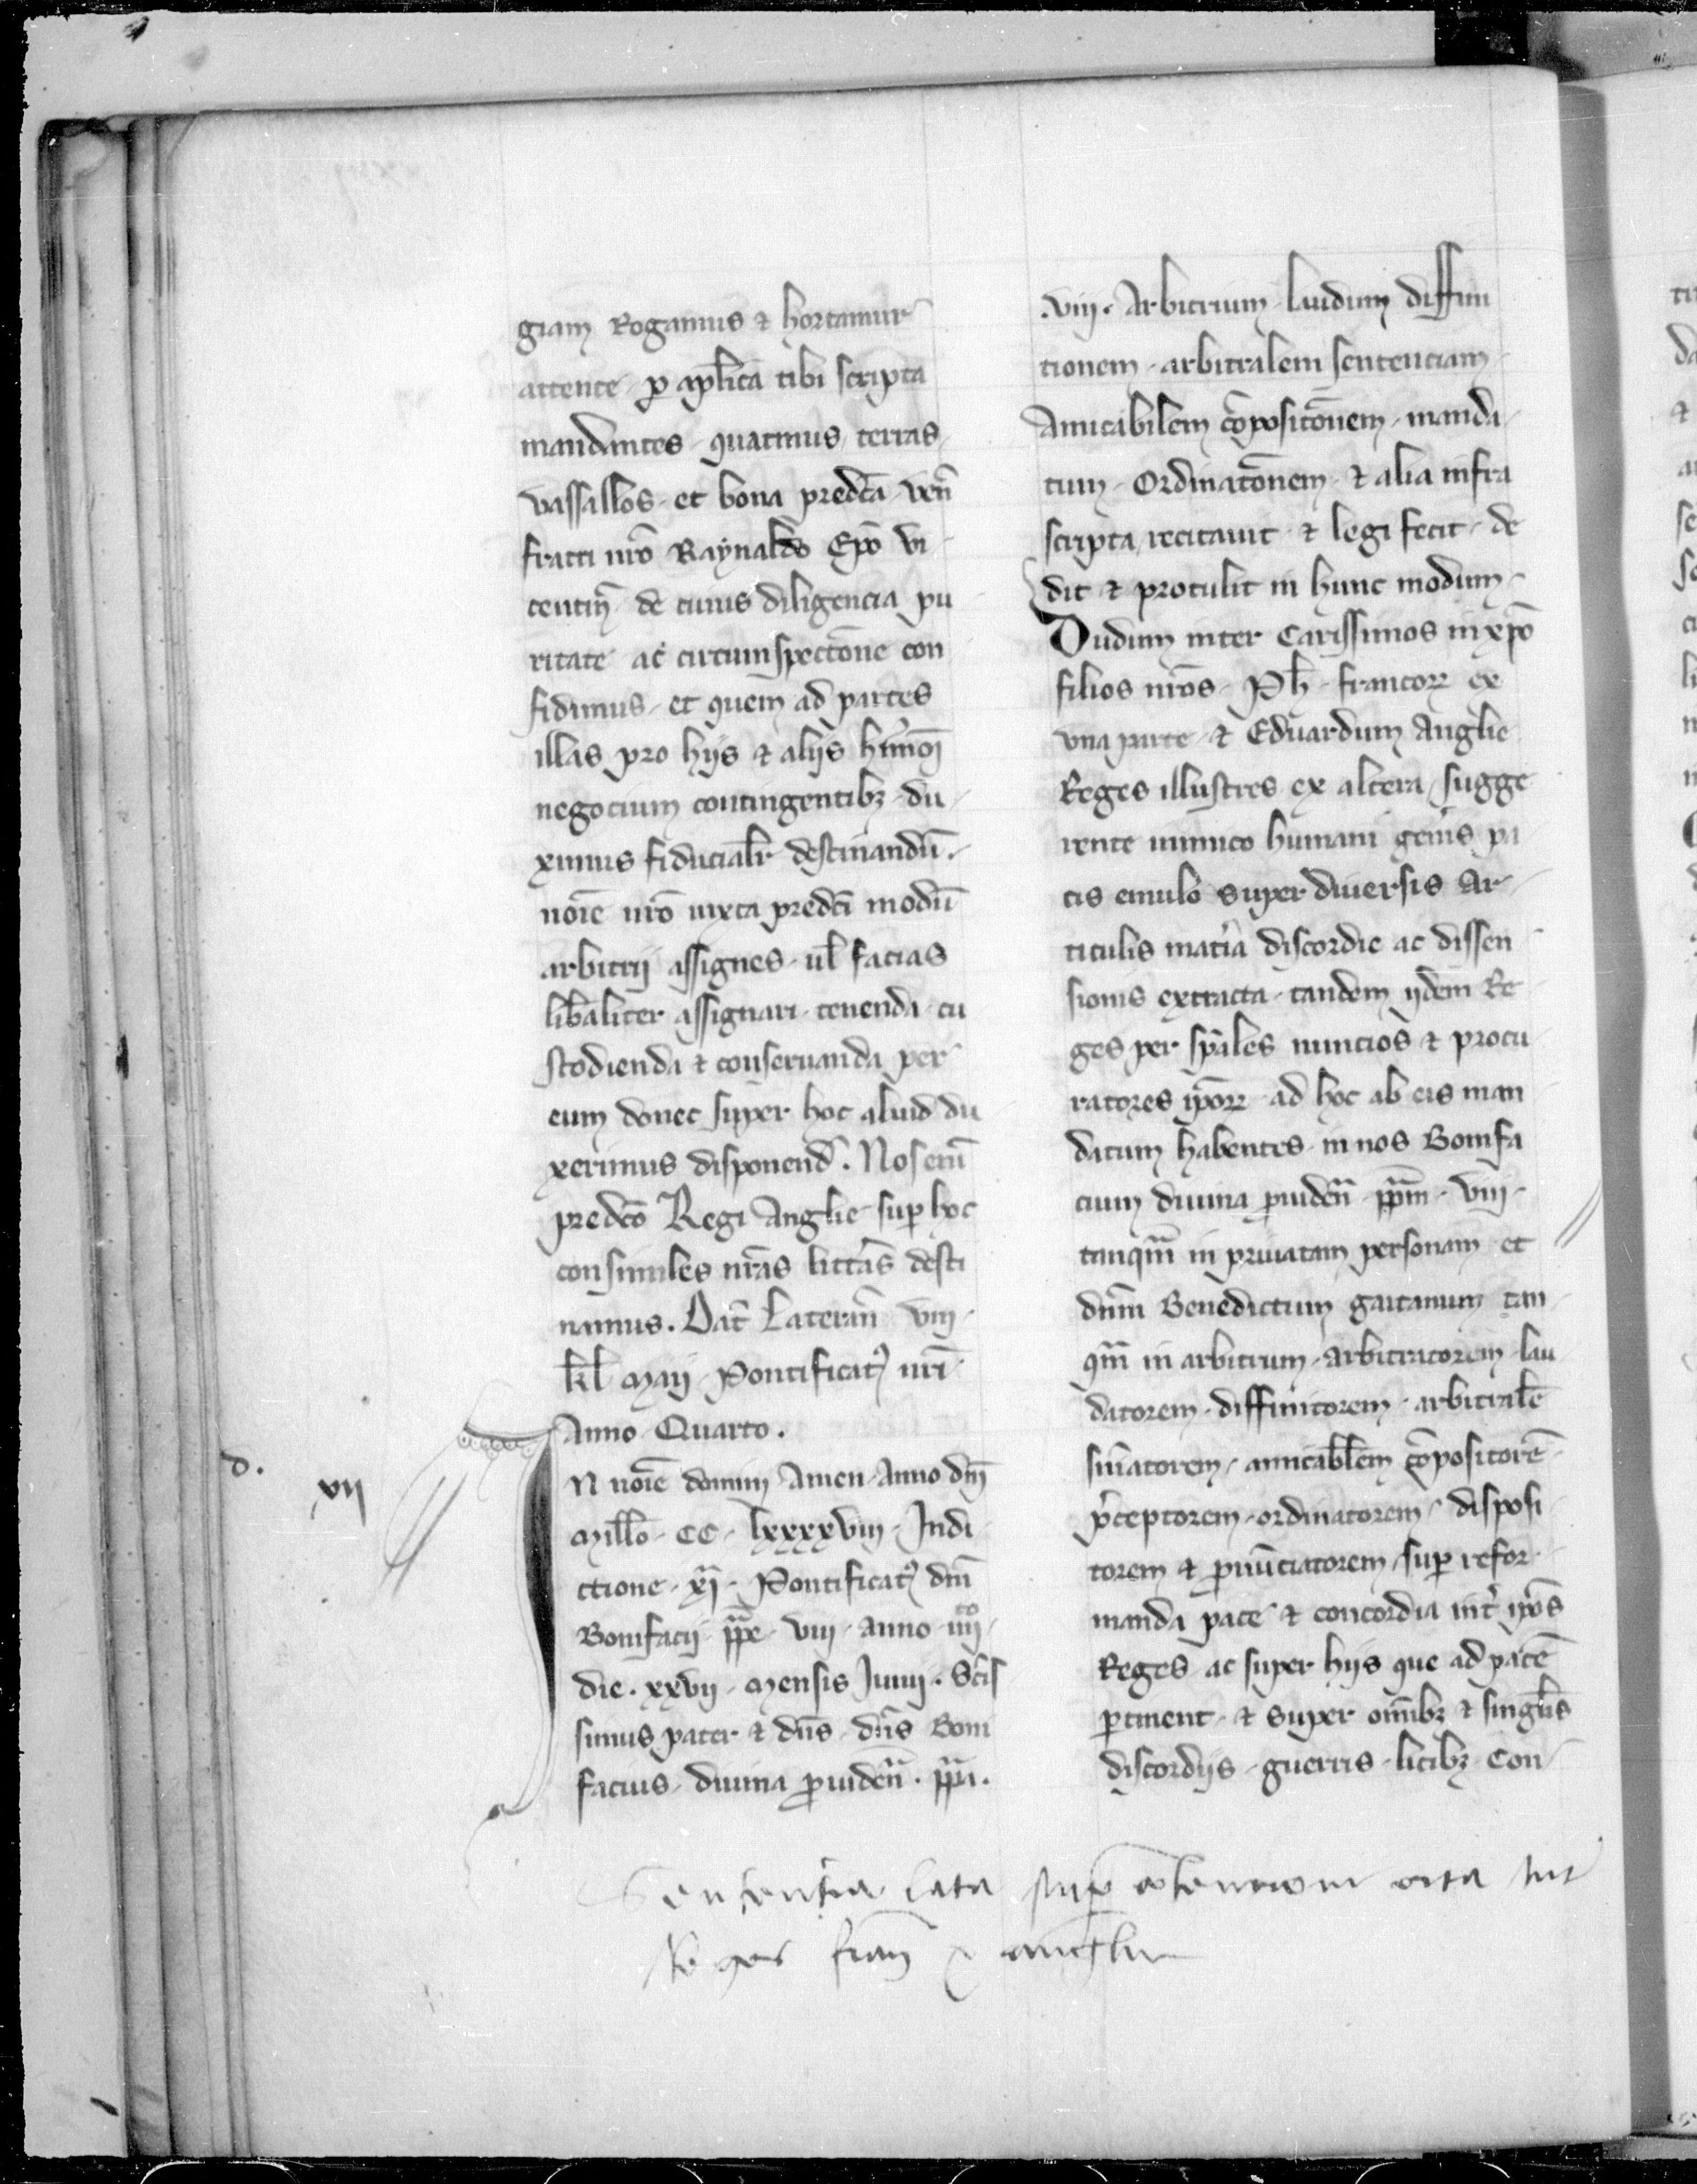 giam Rogamus & hortamur
attente p aplica tibi scripta
mandantes quatinus terras
vassallos et bona predca ven
fratri nro Raynaldo Epo vi
centin de cuius diligencia pu
ritate ac circumspectone con
fidimus et quem ad partes
illas pro hijs & alijs hmoi
negocium contingentibz du
ximus fiducialr destinandu.
noie nro iuxta predci modu
arbitrij assignes ul facias
libaliter assignari tenenda cu
stodienda & conseruanda per
eum donec super hoc aliud du
xerimus disponend. Nos eni
predco Regi Anglie sup hoc
consimiles nras litteras desti
namus. Dat Lateran viij
kl maij Pontificatꝰ nri
Anno Quarto.
d. vij
In noie domini Amen Anno dni
Millo CC lxxxxviij Indi
ctione xj Pontificatꝰ dni
Bonifacij ppe viij anno iiijto
die. xxvij mensis Junij. Scis
simus pater & dns dns Boni
facius diuina prouiden. ppa.
.viij. Arbitrium laudum diffini
tionem arbitralem sentenciam
Amicabilem compositonem manda
tum Ordinatonem & alia infra
scripta recitauit & legi fecit de
dit & protulit in hunc modum
Dudum inter Carissimos in xpo
filios nros Ph francoꝝ ex
vna parte & Eduardum Anglie
Reges illustres ex altera sugge
rente inimico humani genis pa
cis emulo super diuersis Ar
ticulis matia discordie ac dissen
sionis exttacta tandem ijdem Re
ges per spales nuncios & procu
ratores ipoꝝ ad hoc ab eis man
datum habentes in nos Bonifa
cium diuina prouiden ppm viij
tanqm in priuatam personam et
dnm Benedictum gaitanum tan
qm in arbitrum Arbitratorem lau
datorem diffinitorem arbitrale
sniatorem amicablem compositore
pceptorem ordinatorem disposi
torem & pronunciatorem sup refor
manda pace & concordia int ipos
Reges ac super hijs que ad pace
ptinent & super omibz & singlis
discordijs guerris litibz Con
Sententia lata sup contencione orta int
Reges fran & anglie